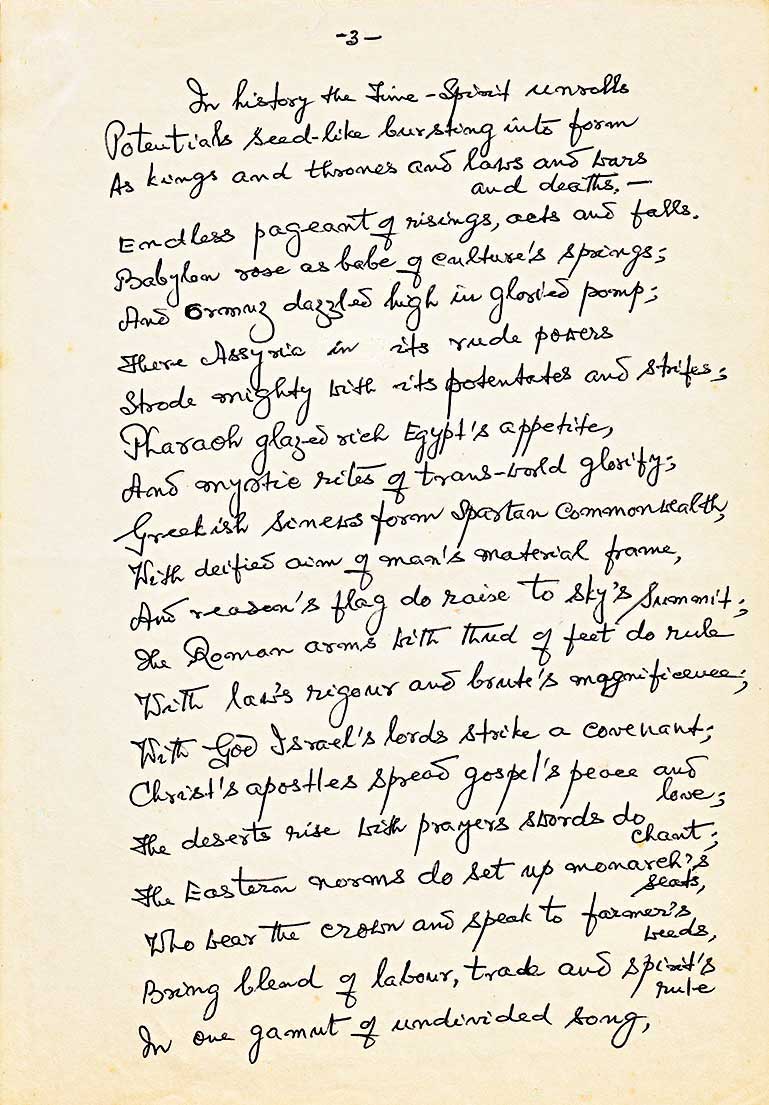 -3-
In history the Time-Spirit unrolls
Potentials seed-like bursting into form
As kings and thrones and laws and wars
and deaths, —
Endless pageant of risings, acts and falls.
Babylon rose as babe of culture's springs;
And Ormuz dazzled high in gloried pomp;
There Assyria in its rude powers
Strode mighty with its potentates and strifes;
Pharaoh glazed rich Egypt's appetite,
And mystic rites of trans-world glorify;
Greekish sinews form Spartan Commonwealth,
With deified aim of man's material frame,
And reason's flag do raise to sky's summit;
The Roman arms with thud of feet do rule
With law's rigour and brute's magnificence;
With God Israel's lords strike a covenant;
Christ's apostles spread gospel's peace and
love;
The deserts rise with prayers swords do
chant;
The Eastern norms do set up monarch's
seats,
Who wear the crown and speak to farmer's
weeds,
Bring blend of labour, trade and spirit's
rule
In one gamut of undivided song,